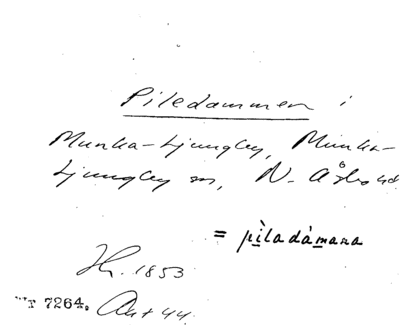 Piledammen i
Munka-Ljungby, Munka-
Ljungby sn, N. Åsbo hd
= pìladàmana
Hr. 1853
7264. Ant 44.